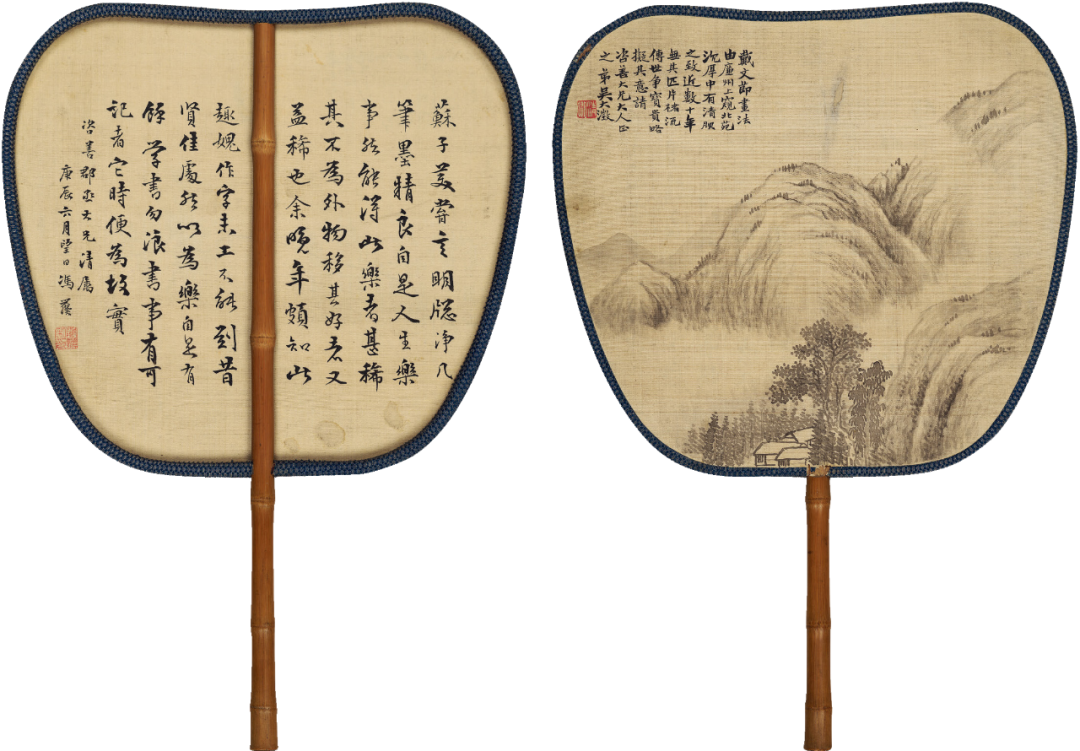 蘇子美嘗言明牕淨几
筆墨精良自是人生樂
事然能得此樂者甚稀
其不為外物移其好者又
益稀也余晚年頗知此
趣媿作字未工不能到昔
賢佳處然以為樂自是有
餘學書勿浪書事有可
記者它時便為故實
咨善郡丞大兄清屬
庚辰六月望日馮
戴文節畫法
由廉州上窺北苑
沉厚中有清腴
之致近數十年
無其匹片楮流
傳世爭寶貴略
擬其意請
咨善大兄大人正
之弟吳大澂